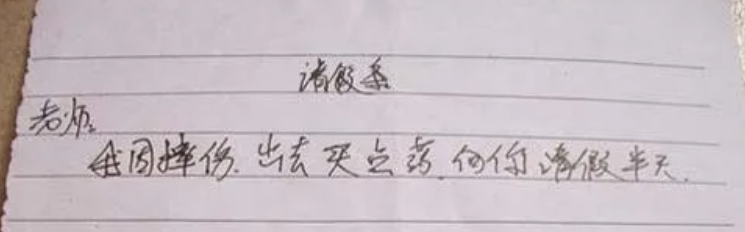 请假条
老师:
我因摔伤.出去买点药.向你请假半天.